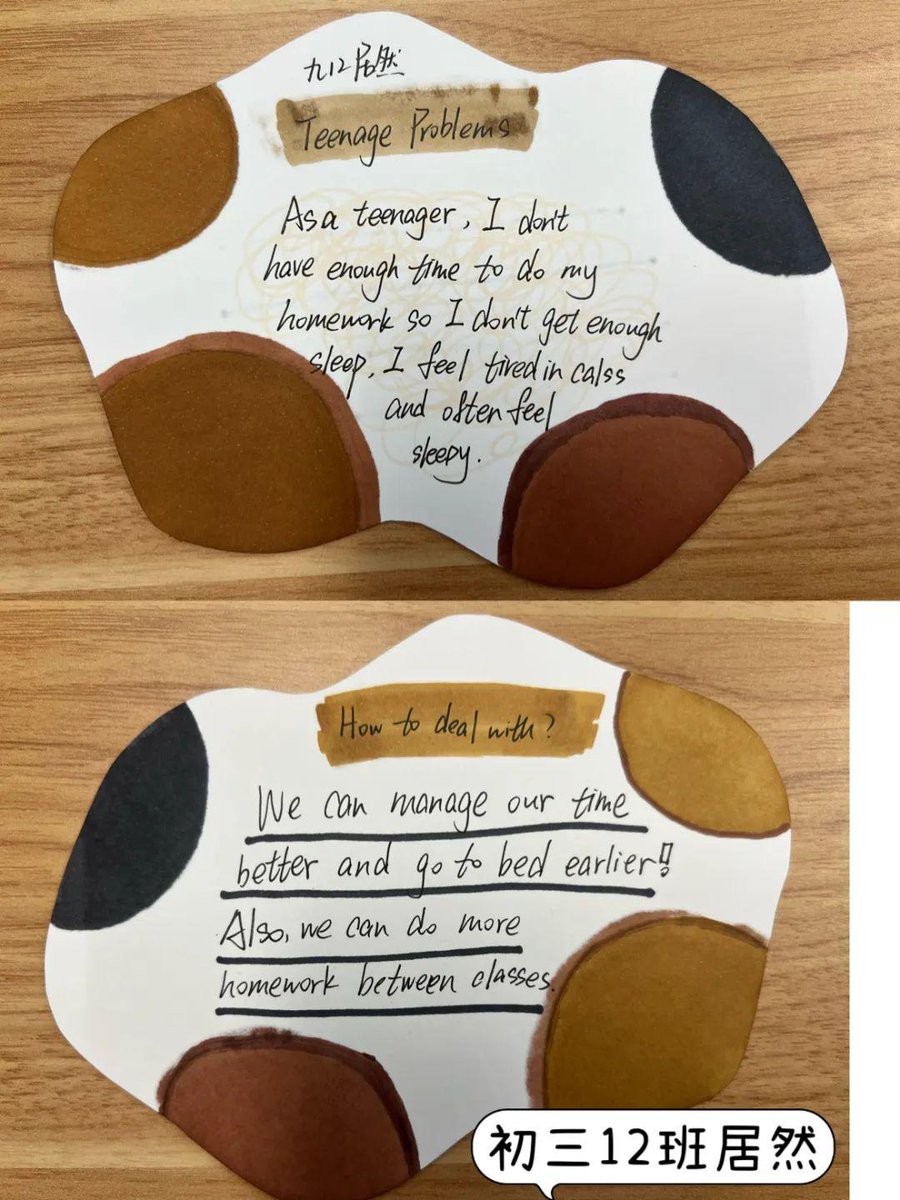 九12居然
Teenage Problems
As a teenager, I don't
have enough time to do my
homework so I don't get enough
sleep. I feel tired in calss
and often feel
sleepy.
How to deal with?
We can manage our time
better and go to bed earlier!
Also, we can do more
homework between classes.
初三12班居然